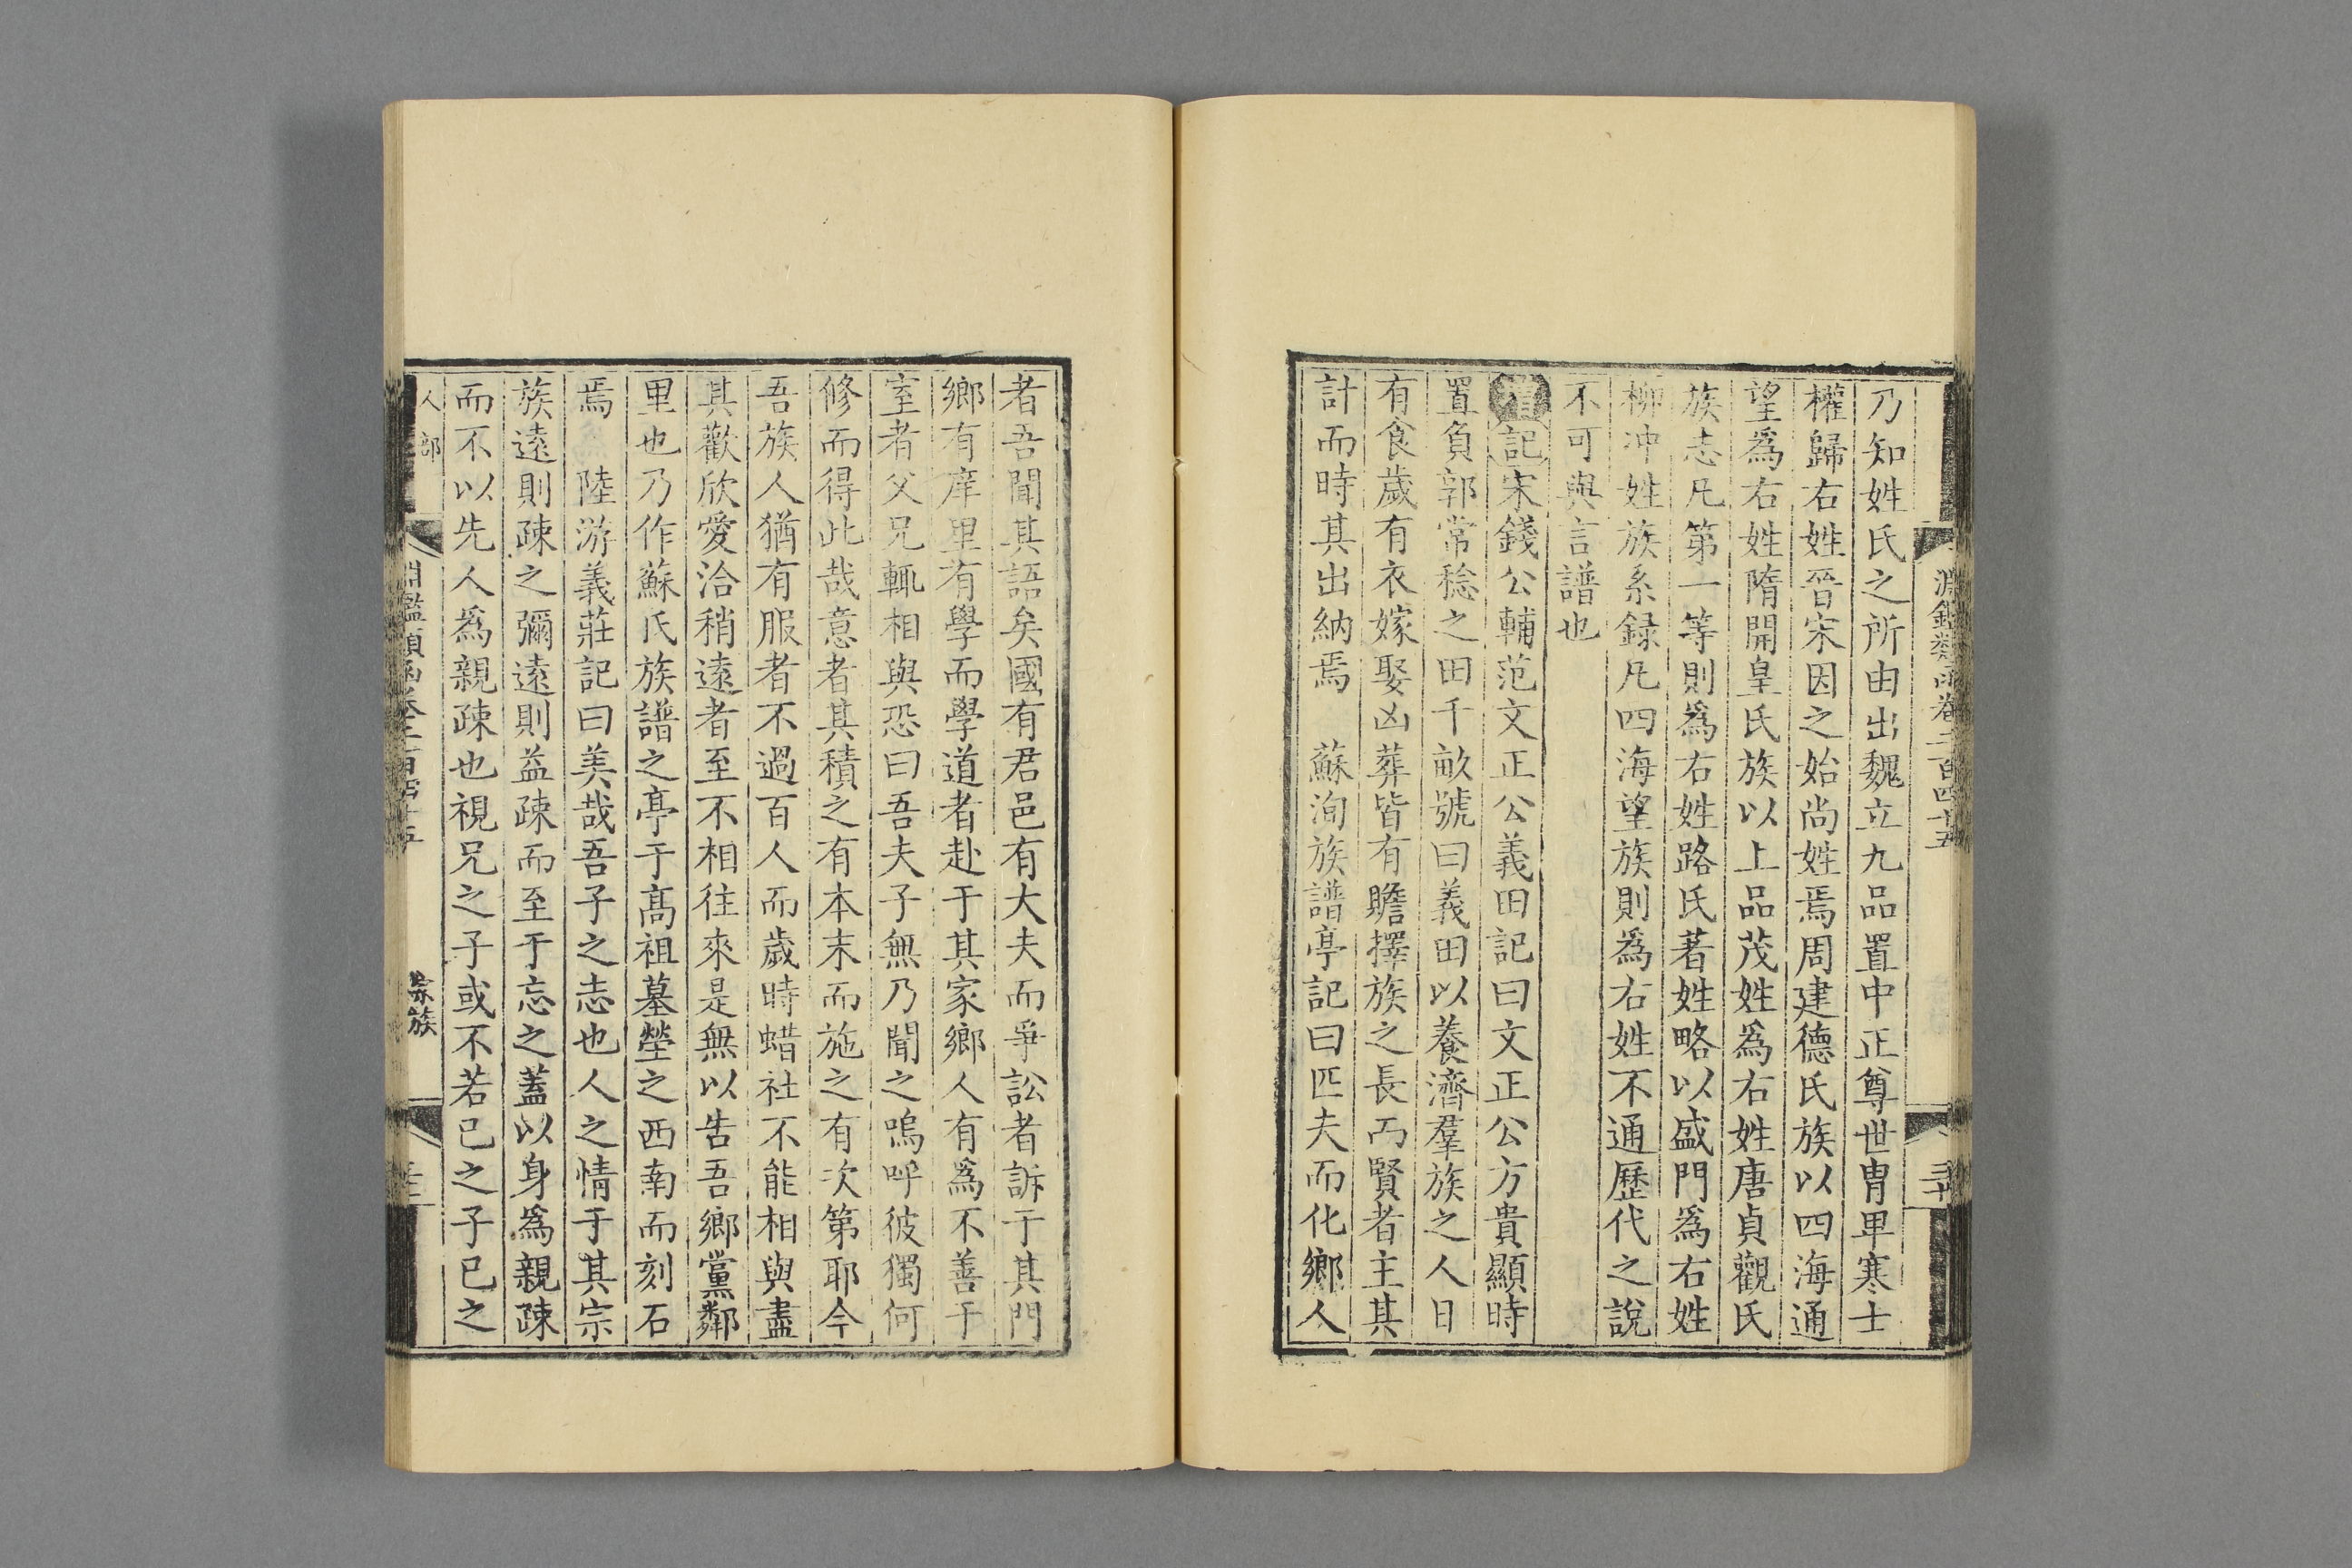 淵鑑類函卷二百四十五
三十
乃知姓氏之所由出魏立九品置中正尊世胄卑寒士
權歸右姓晉宋因之始尚姓焉周建德氏族以四海通
望爲右姓隋開皇氏族以上品茂姓爲右姓唐貞觀氏
族志凡第一等則爲右姓路氏著姓略以盛門爲右姓
柳冲姓族系録凡四海望族則爲右姓不通歷代之說
不可與言譜也
記宋錢公輔范文正公義田記曰文正公方貴顯時
置負郭常稔之田千畝號曰義田以養濟羣族之人日
有食歲有衣嫁娶凶葬皆有贍擇族之長而賢者主其
計而時其出納焉 蘇洵族譜亭記曰匹夫而化鄉人
者吾聞其語矣國有君邑有大夫而爭訟者訴于其門
鄉有庠里有學而學道者赴于其家鄉人有爲不善于
室者父兄輒相與恐曰吾夫子無乃聞之嗚呼彼獨何
修而得此哉意者其積之有本末而施之有次第耶今
吾族人猶有服者不過百人而歲時蜡社不能相與盡
其歡欣愛洽稍遠者至不相往來是無以告吾鄉黨鄰
里也乃作蘇氏族譜之亭于髙祖墓塋之西南而刻石
焉 陸游義莊記曰美哉吾子之志也人之情于其宗
族遠則疎之彌遠則益疎而至于忘之蓋以身爲親疎
而不以先人爲親疎也視兄之子或不若己之子己之
人部
淵鑑類函卷二百四十五
宗族